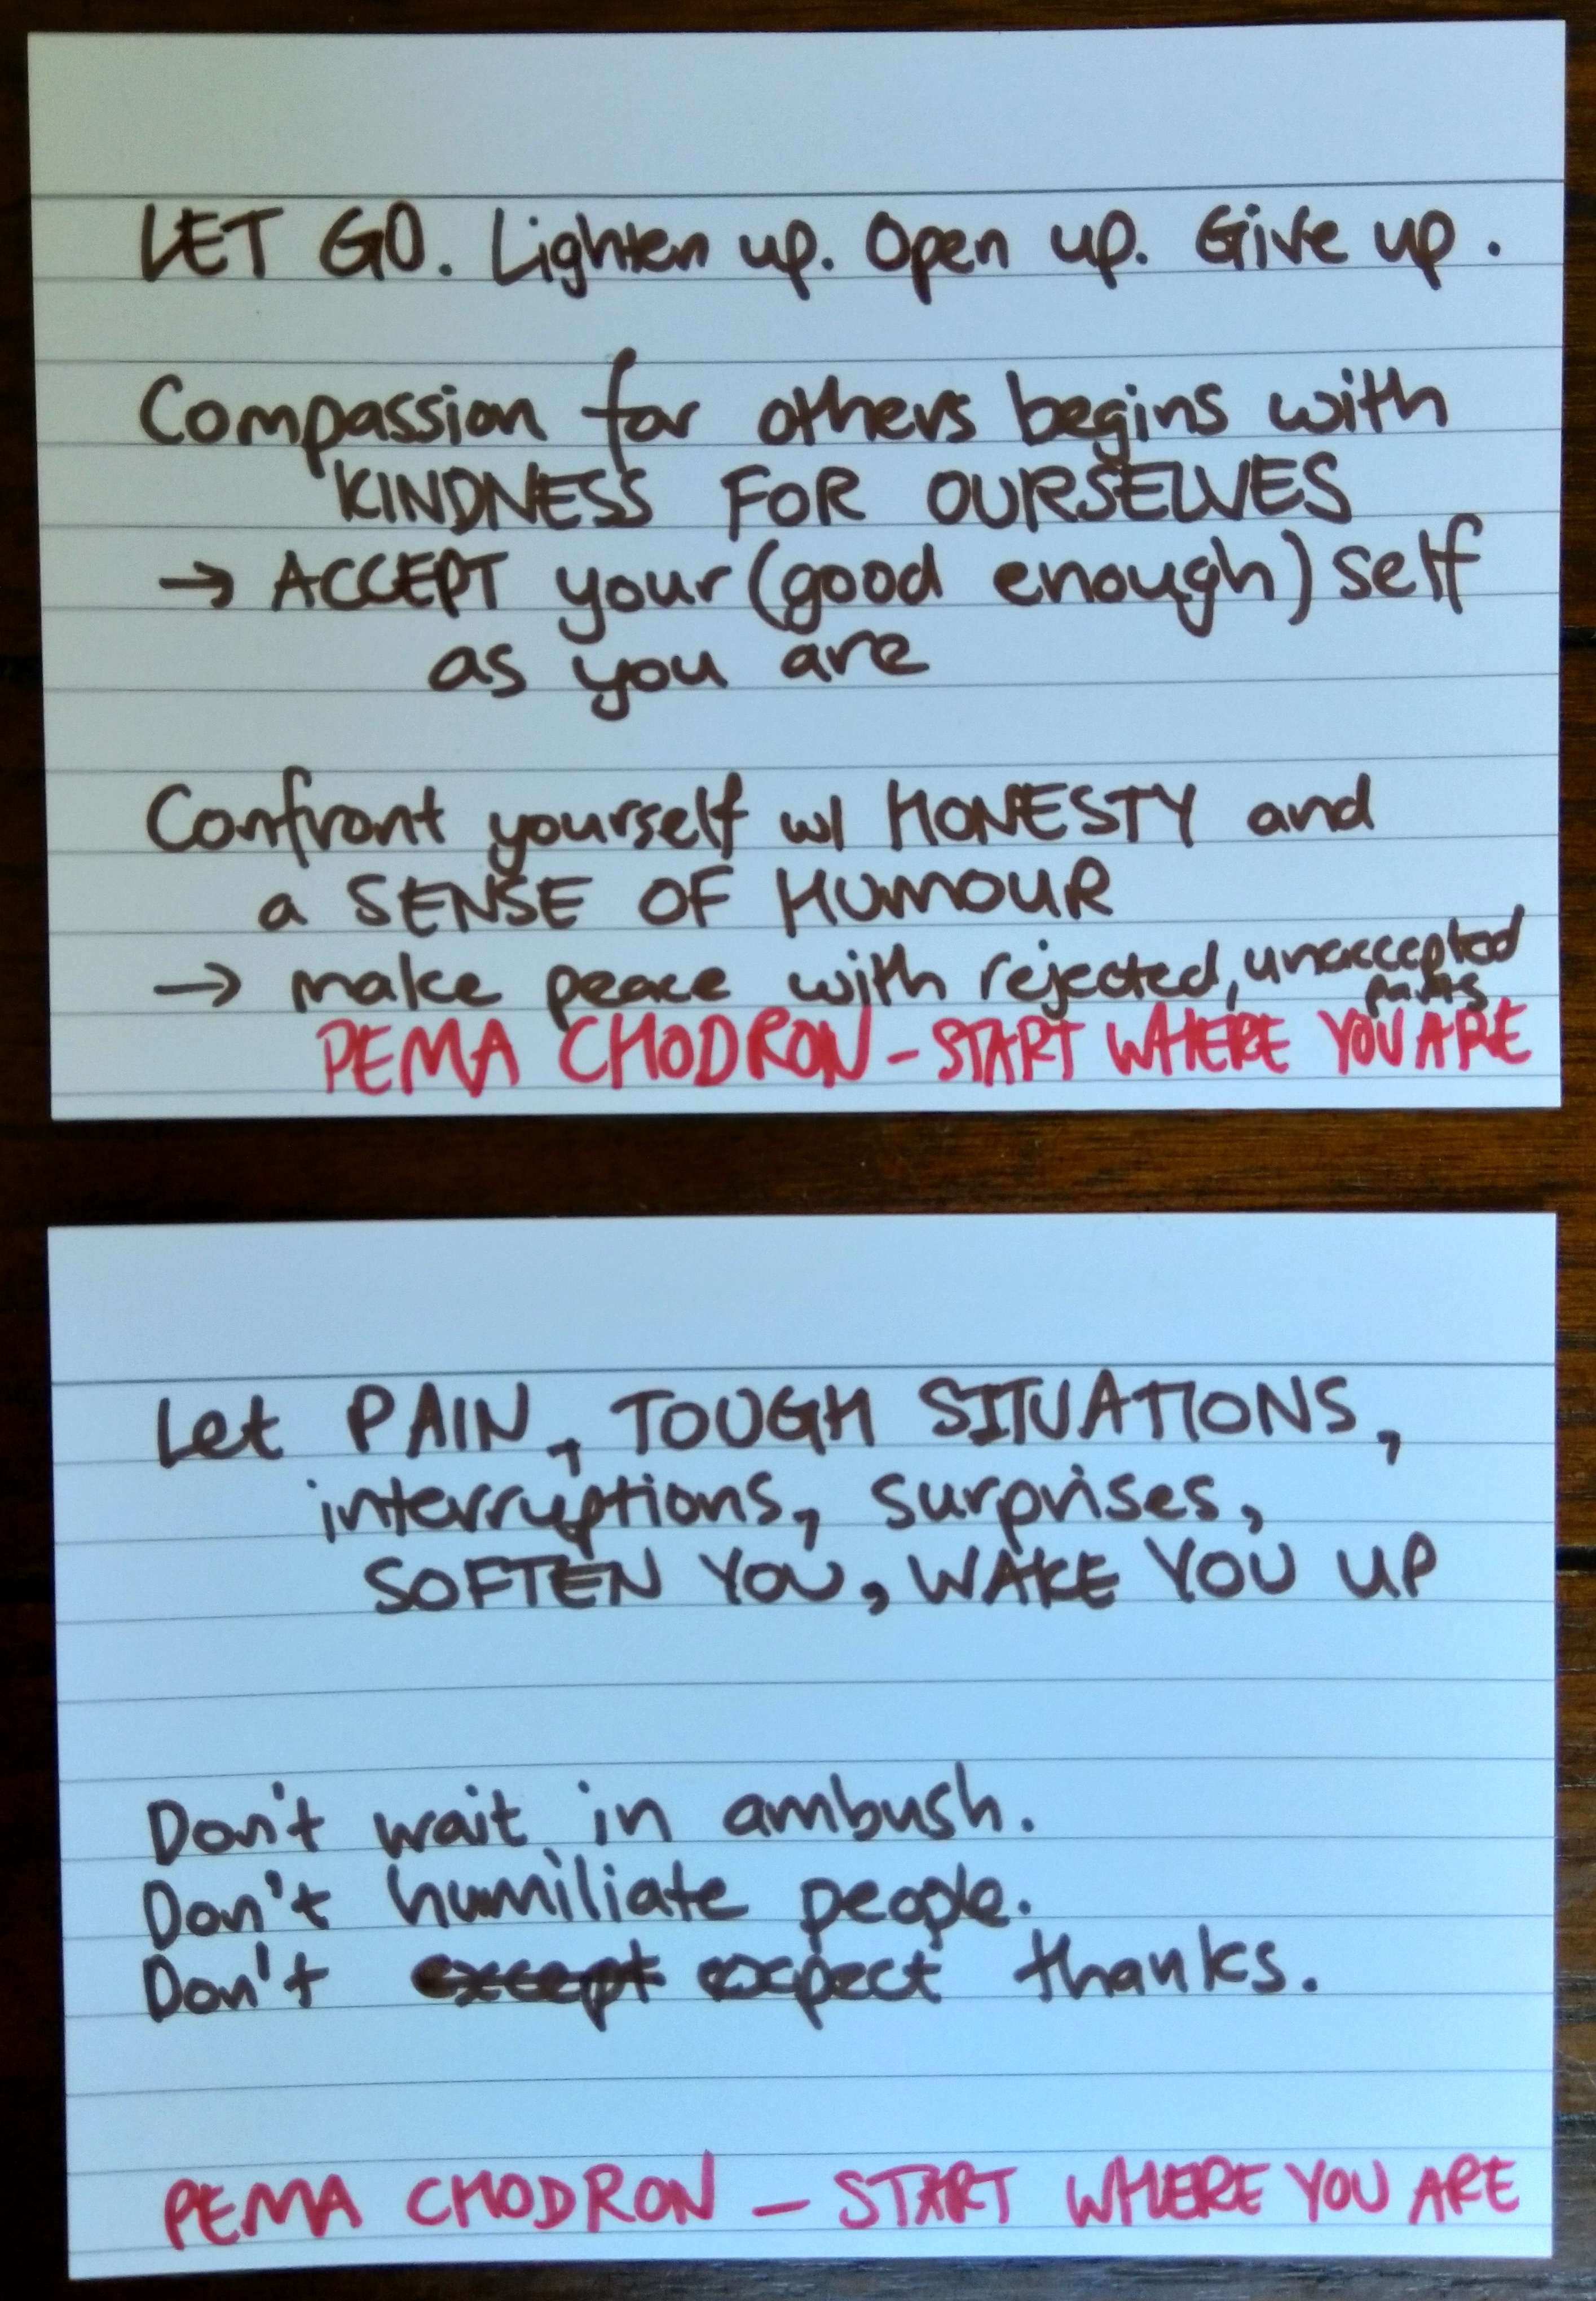 LET GO. Lighten up. Open up. Give up.
Compassion for others begins with
KINDNESS FOR OURSELVES
→ ACCEPT your (good enough) self
as you are
Confront yourself w/ HONESTY and
a SENSE OF HUMOUR
→ make peace with rejected, unaccepted
parts
PEMA CHODRON – START WHERE YOU ARE
Let PAIN, TOUGH SITUATIONS,
interruptions, surprises,
SOFTEN YOU, WAKE YOU UP
Don't wait in ambush.
Don't humiliate people.
Don't except expect thanks.
PEMA CHODRON – START WHERE YOU ARE